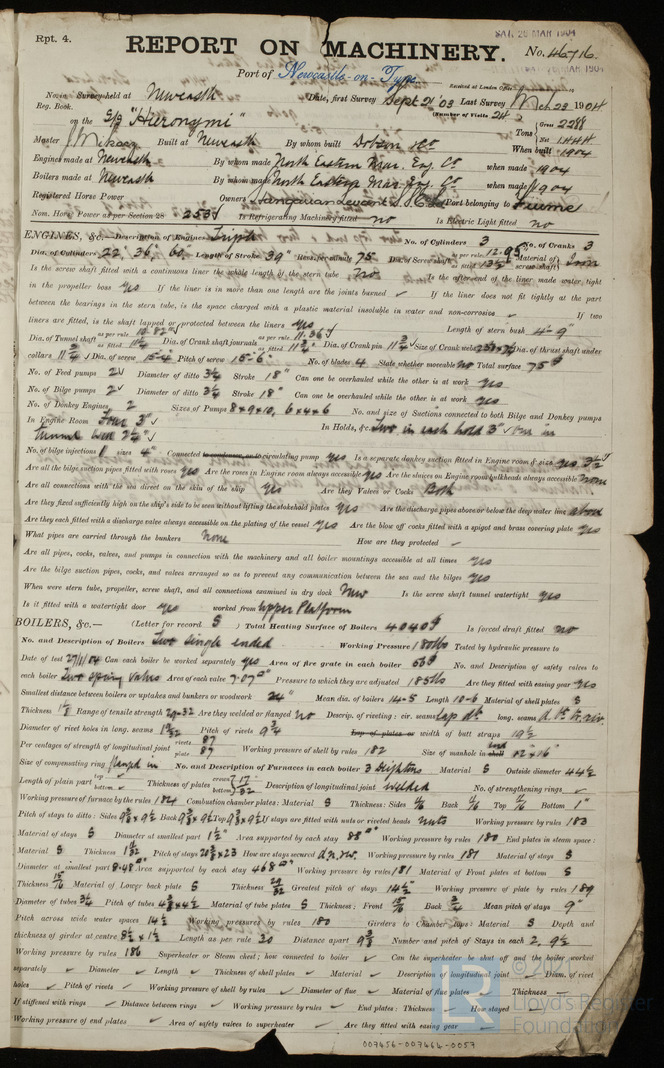 Rpt. 4.
REPORT ON MACHINERY.
SAT. 26 MAR 1904
No. 46716.
Port of Newcastle-on-Tyne
Received at London Office
No. in Survey held at Newcastle Date, first Survey Sept 21 '03 Last Survey Mch 23 1904
Reg. Book. (Number of Visits 24)
on the S/S "Hieronymi" Tons Gross 2288 Net 1444
Master Built at Newcastle By whom built Dobson & Co When built 1904
Engines made at Newcastle By whom made North Eastern Mar. Eng. Co when made 1904
Boilers made at Newcastle By whom made North Eastern Mar. Eng. Co when made 1904
Registered Horse Power Owners Hungarian Levant S.S. Co Port belonging to Fiume
Nom. Horse Power as per Section 28 253 Is Refrigerating Machinery fitted no Is Electric Light fitted no
ENGINES, &c.— Description of Engines Triple No. of Cylinders 3 No. of Cranks 3
Dia. of Cylinders 22, 36, 60 Length of Stroke 39" Revs. per minute 75 Dia. of Screw shaft as per rule 12.95 as fitted 13½" Material of screw shaft Iron
Is the screw shaft fitted with a continuous liner the whole length of the stern tube no Is the after end of the liner made water tight
in the propeller boss yes If the liner is in more than one length are the joints burned ✓ If the liner does not fit tightly at the part
between the bearings in the stern tube, is the space charged with a plastic material insoluble in water and non-corrosive ✓ If two
liners are fitted, is the shaft lapped or protected between the liners yes Length of stern bush 4'-9"
Dia. of Tunnel shaft as per rule 10.82" as fitted 11¼" Dia. of Crank shaft journals as per rule 11.36" as fitted 11¾" Dia. of Crank pin 11¾" Size of Crank webs Dia. of thrust shaft under
collars 11¾" Dia. of screw 15-4" Pitch of screw 15-6" No. of blades 4 State whether moveable no Total surface 75
No. of Feed pumps 2 Diameter of ditto 3¼ Stroke 18" Can one be overhauled while the other is at work yes
No. of Bilge pumps 2 Diameter of ditto 3¼ Stroke 18" Can one be overhauled while the other is at work yes
No. of Donkey Engines 2 Sizes of Pumps 8x9x10, 6x4x6 No. and size of Suctions connected to both Bilge and Donkey pumps
In Engine Room Four 3" In Holds, &c. Two in each hold 3" One in
Tunnel well 2½"
No. of bilge injections 1 sizes 4" Connected to condenser, or to circulating pump yes Is a separate donkey suction fitted in Engine room & size yes 3½
Are all the bilge suction pipes fitted with roses yes Are the roses in Engine room always accessible yes Are the sluices on Engine room bulkheads always accessible none
Are all connections with the sea direct on the skin of the ship yes Are they Valves or Cocks Both
Are they fixed sufficiently high on the ship's side to be seen without lifting the stokehold plates yes Are the discharge pipes above or below the deep water line above
Are they each fitted with a discharge valve always accessible on the plating of the vessel yes Are the blow off cocks fitted with a spigot and brass covering plate yes
What pipes are carried through the bunkers None How are they protected –
Are all pipes, cocks, valves, and pumps in connection with the machinery and all boiler mountings accessible at all times yes
Are the bilge suction pipes, cocks, and valves arranged so as to prevent any communication between the sea and the bilges yes
When were stern tube, propeller, screw shaft, and all connections examined in dry dock New Is the screw shaft tunnel watertight yes
Is it fitted with a watertight door yes worked from Upper Platform
BOILERS, &c.— (Letter for record S) Total Heating Surface of Boilers 4040 Is forced draft fitted no
No. and Description of Boilers Two single ended Working Pressure 180lbs Tested by hydraulic pressure to
Date of test 27/1/04 Can each boiler be worked separately yes Area of fire grate in each boiler 56 No. and Description of safety valves to
each boiler Two spring valves Area of each valve 7.07 Pressure to which they are adjusted 185lbs Are they fitted with easing gear yes
Smallest distance between boilers or uptakes and bunkers or woodwork 24" Mean dia. of boilers 14-5 Length 10-6 Material of shell plates S
Thickness Range of tensile strength 29-32 Are they welded or flanged no Descrip. of riveting: cir. seams Lap dr. long. seams
Diameter of rivet holes in long. seams Pitch of rivets 9¾ Lap of plates or width of butt straps 19½
Per centages of strength of longitudinal joint rivets 87 plate 87 Working pressure of shell by rules 182 Size of manhole in end shell 12"x16"
Size of compensating ring flanged in No. and Description of Furnaces in each boiler 3 Deightons Material S Outside diameter 44½
Length of plain part top bottom ✓ Thickness of plates crown bottom 17/32 Description of longitudinal joint welded No. of strengthening rings ✓
Working pressure of furnace by the rules 184 Combustion chamber plates: Material S Thickness: Sides Back Top Bottom 1"
Pitch of stays to ditto: Sides Back Top If stays are fitted with nuts or riveted heads nuts Working pressure by rules 183
Material of stays S Diameter at smallest part 1½" Area supported by each stay 88 Working pressure by rules 180 End plates in steam space:
Material S Thickness Pitch of stays How are stays secured d.n.&w. Working pressure by rules 181 Material of stays S
Diameter at smallest part 8.48 Area supported by each stay 468 Working pressure by rules 181 Material of Front plates at bottom S
Thickness 15/16 Material of Lower back plate S Thickness 29/32 Greatest pitch of stays 14½" Working pressure of plate by rules 189
Diameter of tubes 3¼ Pitch of tubes Material of tube plates S Thickness: Front 15/16 Back ¾ Mean pitch of stays 9"
Pitch across wide water spaces 14½ Working pressures by rules 180 Girders to Chamber tops: Material S Depth and
thickness of girder at centre 8½ x 1½ Length as per rule 30 Distance apart Number and pitch of Stays in each 2, 9½
Working pressure by rules 186 Superheater or Steam chest; how connected to boiler ✓ Can the superheater be shut off and the boiler worked
separately ✓ Diameter ✓ Length ✓ Thickness of shell plates ✓ Material ✓ Description of longitudinal joint ✓ Diam. of rivet
holes ✓ Pitch of rivets ✓ Working pressure of shell by rules ✓ Diameter of flue ✓ Material of flue plates ✓ Thickness ✓
If stiffened with rings ✓ Distance between rings ✓ Working pressure by rules ✓ End plates: Thickness ✓ How stayed ✓
Working pressure of end plates ✓ Area of safety valves to superheater ✓ Are they fitted with easing gear ✓
Lloyd's Register
Foundation
007456-007464-0057